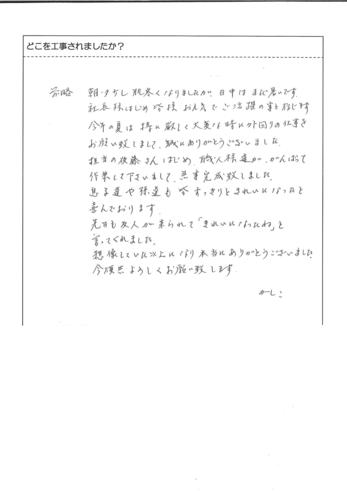 どこを工事されましたか？
前略 朝・夕少し肌寒くなりましたが、日中はまだ暑いです。
社長様はじめ皆様 お元気でご活躍の事と存じます
今年の夏は特に厳しく大変な時に外回りの仕事を
お願い致しまして、誠にありがとうございました。
担当の後藤さんはじめ、職人様達が、がんばって
作業して下さいまして、無事完成致しました。
息子達や孫達も皆すっきりときれいになったと
喜んでおります。
先日も友人が来られて「きれいになったね」と
言ってくれました。
想像していた以上になり本当にありがとうございました
今後共よろしくお願い致します。
かしこ